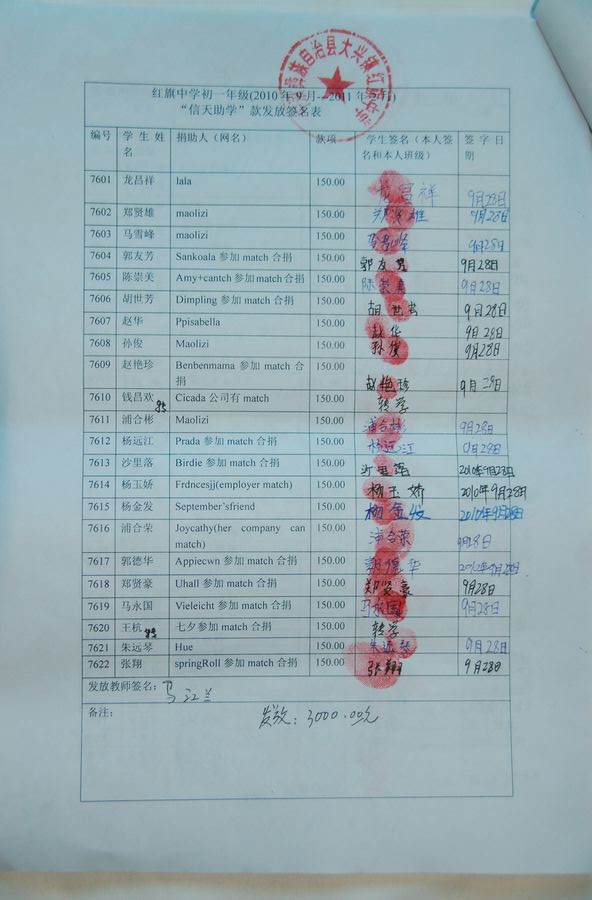 族自治县大兴镇红旗中
红旗中学初一年级(2010年9月--2011年 月)
“信天助学”款发放签名表
编号 学生姓名 捐助人（网名） 款项 学生签名（本人签名和本人班级） 签字日期
7601 龙昌祥 lala 150.00 龙昌祥 9月28日
7602 郑贤雄 maolizi 150.00 郑贤雄 9月28日
7603 马雪峰 maolizi 150.00 马雪峰 9月28日
7604 郭友芳 Sankoala 参加 match 合捐 150.00 郭友芳 9月28日
7605 陈崇美 Amy+cantch 参加 match 合捐 150.00 陈崇美 9月28日
7606 胡世芳 Dimpling 参加 match 合捐 150.00 胡世芳 9月28日
7607 赵华 Ppisabella 150.00 赵华 9月28日
7608 孙俊 Maolizi 150.00 孙俊 9月28日
7609 赵艳珍 Benbenmama 参加 match 合捐 150.00 赵艳珍 9月28日
7610 钱昌欢 Cicada 公司有 match 150.00 转学
7611 浦合彬 Maolizi 150.00 浦合彬 9月28日
7612 杨远江 Prada 参加 match 合捐 150.00 杨远江 9月28日
7613 沙里落 Birdie 参加 match 合捐 150.00 沙里落 2010年9月28日
7614 杨玉娇 Frdncesjj(employer match) 150.00 杨玉娇 2010年9月28日
7615 杨金发 September'sfriend 150.00 杨金发 2010年9月28日
7616 浦合荣 Joycathy(her company can match) 150.00 浦合荣 9月28日
7617 郭德华 Appiecwn 参加 match 合捐 150.00 郭德华 2010年9月28日
7618 郑贤豪 Uhall 参加 match 合捐 150.00 郑贤豪 9月28日
7619 马永国 Vieleicht 参加 match 合捐 150.00 马永国 9月28日
7620 王杭 七夕参加 match 合捐 150.00 转学
7621 朱远琴 Hue 150.00 朱远琴 9月28日
7622 张翔 springRoll 参加 match 合捐 150.00 张翔 9月28日
发放教师签名： 马江兰
备注： 发放：3000.00元